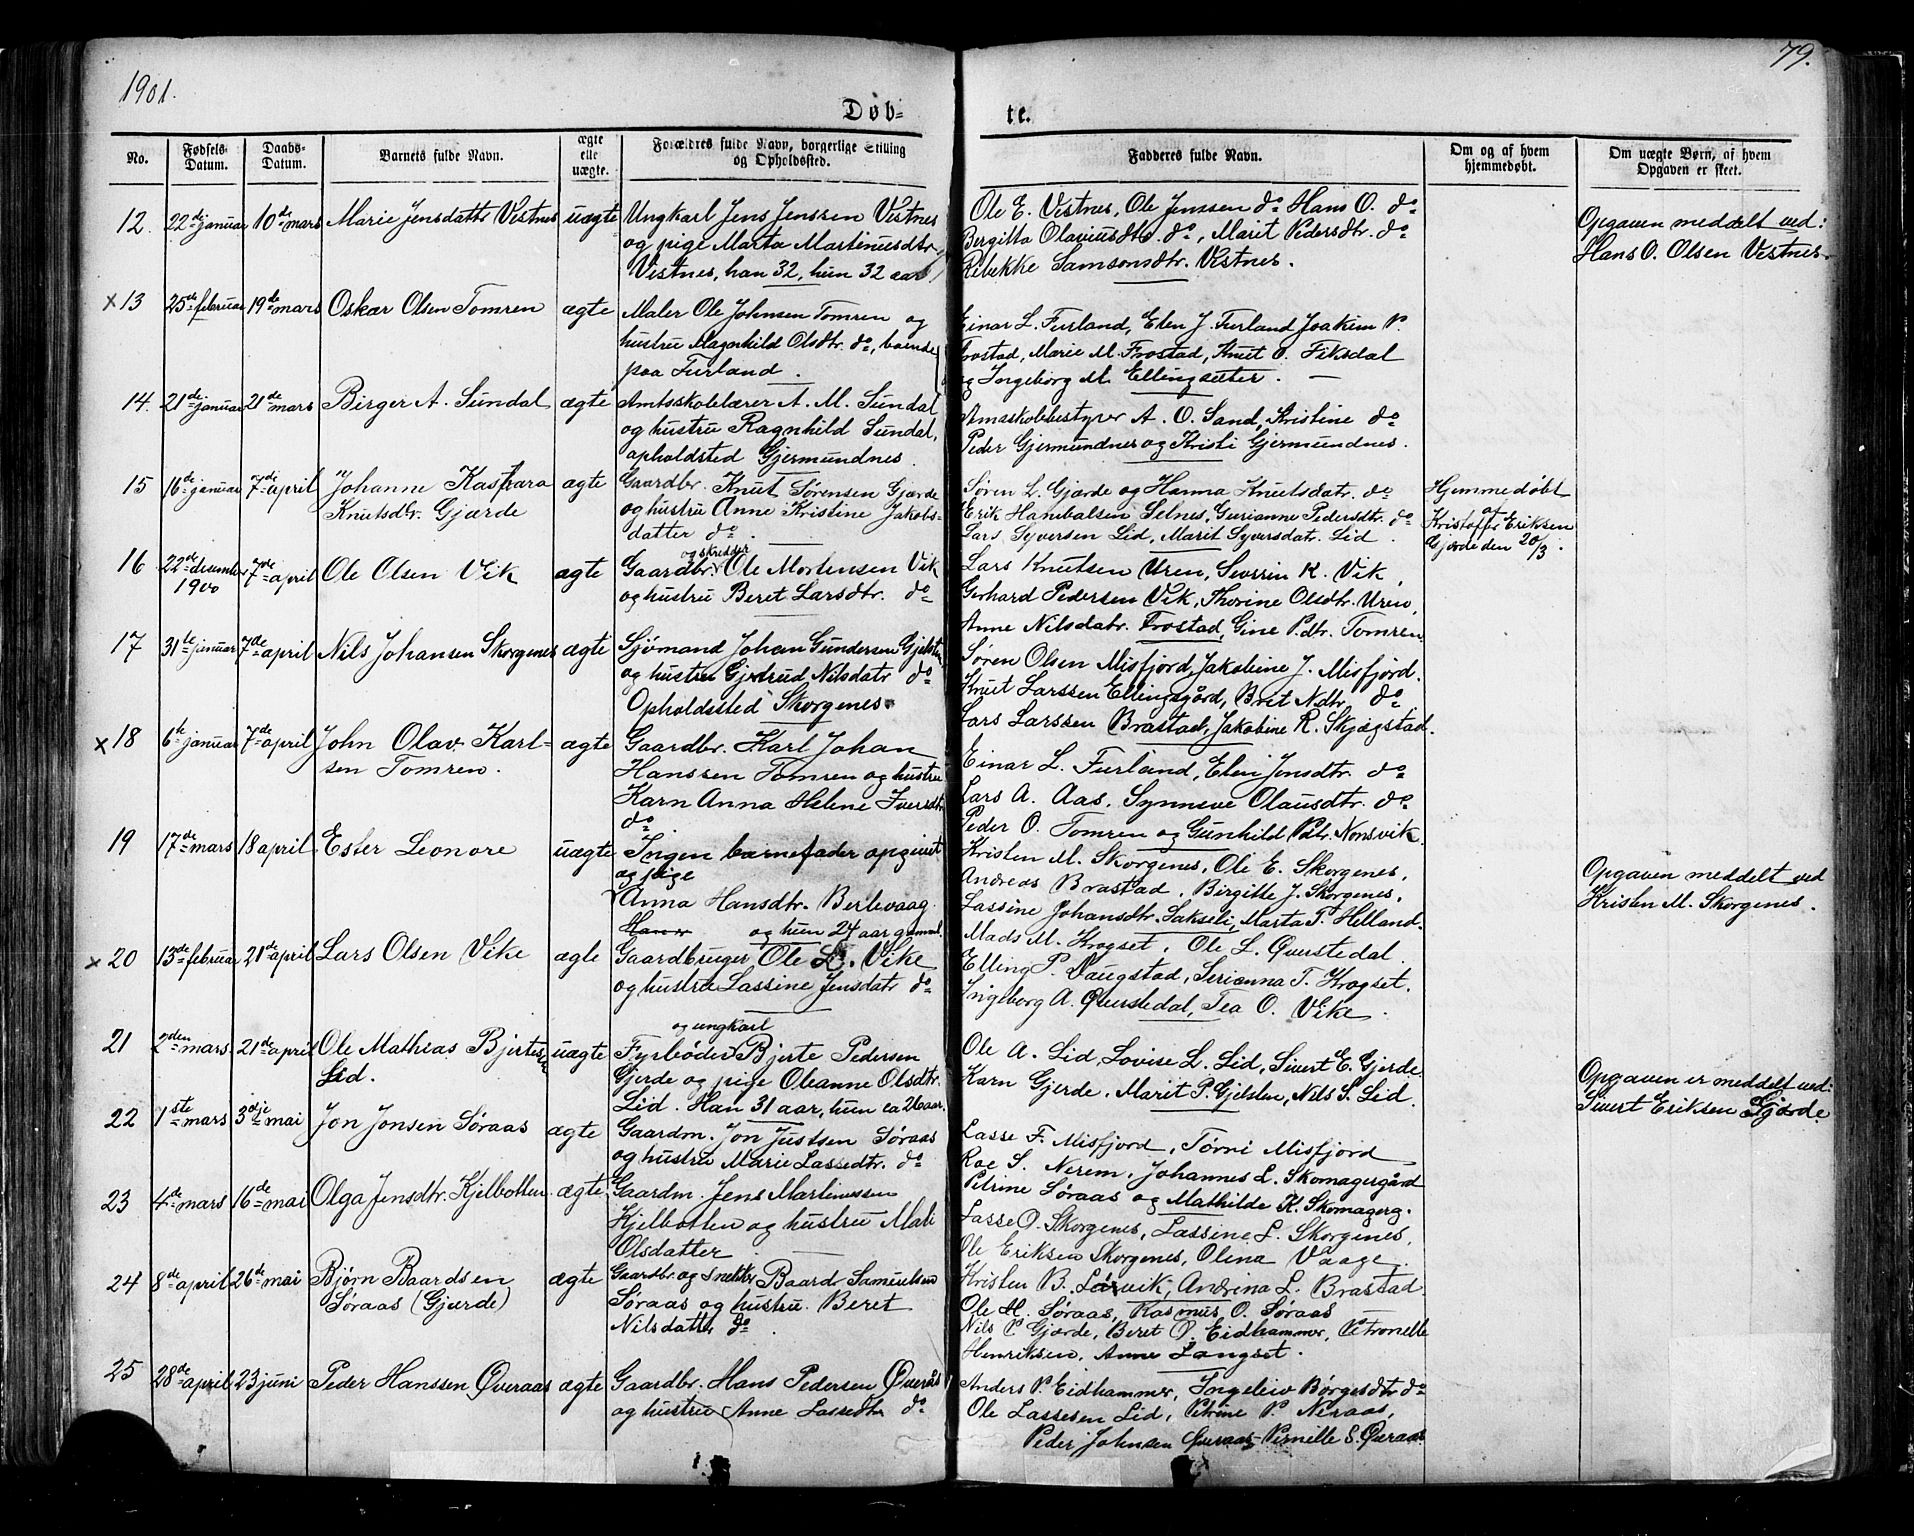 1901.
79.
Døb-
te.
No.
Fødsels-Datum.
Daabs-Datum.
Barnets fulde Navn.
ægte elle uægte.
Forældres fulde Navn, borgerlige Stilling og Opholdssted.
Fadderes fulde Navn.
Om og af hvem hjemmedøbt.
Om uægte Børn, af hvem Opgaven er skeet.
12. 22de januar 10de mars Marie Jensdattr Vestnes uægte Ungkarl Jens Jenssen Vestnes
og pige Marta Martinusdtr
Vestnes, han 32, hun 32 aar
Ole E. Vestnes, Ole Jenssen do Hans O. do
Bergitta Olaviusdtr. do, Marit Pedersdtr. do
Rebekke Samsonsdtr. Vestnes.
Opgaven meddelt ved:
Hans O. Olsen Vestnes.
x 13 25de februar 19de mars Oskar Olsen Tomren ægte Maler Ole Johnsen Tomren og
hustru Magnhild Olsdtr. do, boende
paa Furland.
Einar L. Furland, Elen J. Furland Joakim P.
Frostad, Marie M. Frostad, Knut O. Fiksdal
og Ingeborg M. Ellingsæter.
14. 21de januar 21de mars Birger A. Sundal ægte Amtsskolelærer A. M. Sundal
og hustru Ragnhild Sundal,
opholdsted Gjermundnes.
Amtsskolebestyrer A. O. Sand, Kristine do
Peder Gjermundnes og Kristi Gjermundnes.
15 16de januar 7de april Johanne Kaspara
Knutsdtr. Gjærde
ægte Gaardbr. Knut Sørensen Gjærde
og hustru Anne Kristine Jakobs-
datter do.
Søren L. Gjærde og Hanna Knutsdatr. do
Erik Hanibalsen Selnes, Gurianne Pedersdtr. do
Lars Syversen Lid, Marit Syversdat. Lid.
Hjemmedøbt
af
Kristoffer Eriksen
Gjærde den 20/3.
16 22de desember 7de april Ole Olsen Vik ægte
1900
og skredder
Gaardbr. Ole Mortensen Vik
og hustru Beret Larsdtr. do
Lars Knutsen Uren, Severin K. Vik,
Gerhard Pedersen Vik, Thorine Olsdtr. Uren,
Anne Nilsdatr. Frostad, Gine P.dtr. Tomren
17 31te januar 7de april Nils Johansen Skorgenes ægte Sjømand Johan Gundersen Gjelsten
og hustru Gjertrud Nilsdatr do
Opholdssted Skorgenes
Søren Olsen Misfjord, Jakobine J. Misfjord.
Knut Larssen Ellingsgård, Brit Ndtr. do
Lars Larssen Brastad, Jakobine R. Skjegstad.
x 18 6te januar 7de april John Olav Karl-
sen Tomren.
ægte Gaardbr. Karl Johan
Hanssen Tomren og hustru
Karn Anna Helene Iversdtr
do.
Einar L. Furland, Elen Jonsdtr. do
Lars A. Aas, Synneve Olausdtr. do
Peder O. Tomren og Gunhild Pdtr. Nonsvik.
19 17de mars 18 april Ester Leonore uægte Ingen barnefader opgivet
og pige
Anna Hansdtr. Berlevaag
og hun 24 aar gammel.
Kristen M. Skorgenes, Ole E. Skorgenes,
Andreas Brastad, Birgitte J. Skorgenes,
Lassine Johansdtr. Sakseli, Marta P. Helland.
Opgaven meddelt ved
Kristen M. Skorgenes.
x 20 13de februar 21de april Lars Olsen Vike ægte Gaardbruger Ole L. Vike
og hustru Lassine Jensdatr do
Mads M. Krogset, Ole L. Qverstedal.
Elling P. Vaugstad, Serianna T. Krogset.
Ingeborg A. Qverstedal, Tea O. Vike.
21 2den mars 21de april Ole Mathias Bjertesen
Lid.
uægte
og ungkarl
Fyrbøder Bjerte Pedersen
Gjerde og pige Oleanne Olsdtr.
Lid. Han 31 aar, hun ca 26 aar.
Ole A. Lid, Lovise L. Lid, Sivert E. Gjerde.
Karn Gjerde, Marit P. Gjelsten, Nils S. Lid.
Opgaven er meddelt ved:
Sivert Eriksen Gjærde
22 1ste mars 3dje mai Jon Jonsen Søraas ægte Gaardm. Jon Justsen Søraas
og hustru Marie Lassedtr. do
Lasse F. Misfjord, Tørni Misfjord
Roe S. Nerem, Johannes L. Skomagergård
Petrine Søraas og Mathilde K. Skomagerg.
23 4de mars 16de mai Olga Jensdtr. Kjelbotten ægte Gaardm. Jens Martinussen
Kjelbotten og hustru Mali
Olsdatter
Lasse O. Skorgenes, Lassine L. Skorgenes,
Ole Eriksen Skorgenes, Olina Vaage.
Kristen B. Lervik, Andrina L. Brastad
24 8de april 26de mai Bjørn Baardsen
Søraas (Gjærde)
ægte Gaardbr. og Snekker Baard Samuelsen
Søraas og hustru Beret
Nilsdattr do.
Ole H. Søraas, Rasmus O. Søraas
Nils P. Gjærde, Beret O. Eidhammer, Petronelle
Henriksen, Anne Langset.
25 28de april 23 juni Peder Hanssen Øveraas ægte Gaardbr. Hans Pedersen Øverås
og hustru Anne Lassedtr do
Anders P. Eidhammer, Ingeleiv Børgesdtr do
Ole Lassesen Lid, Petrine P. Neraas,
Peder Johnsen Øveraas Pernelle S. Øveraas